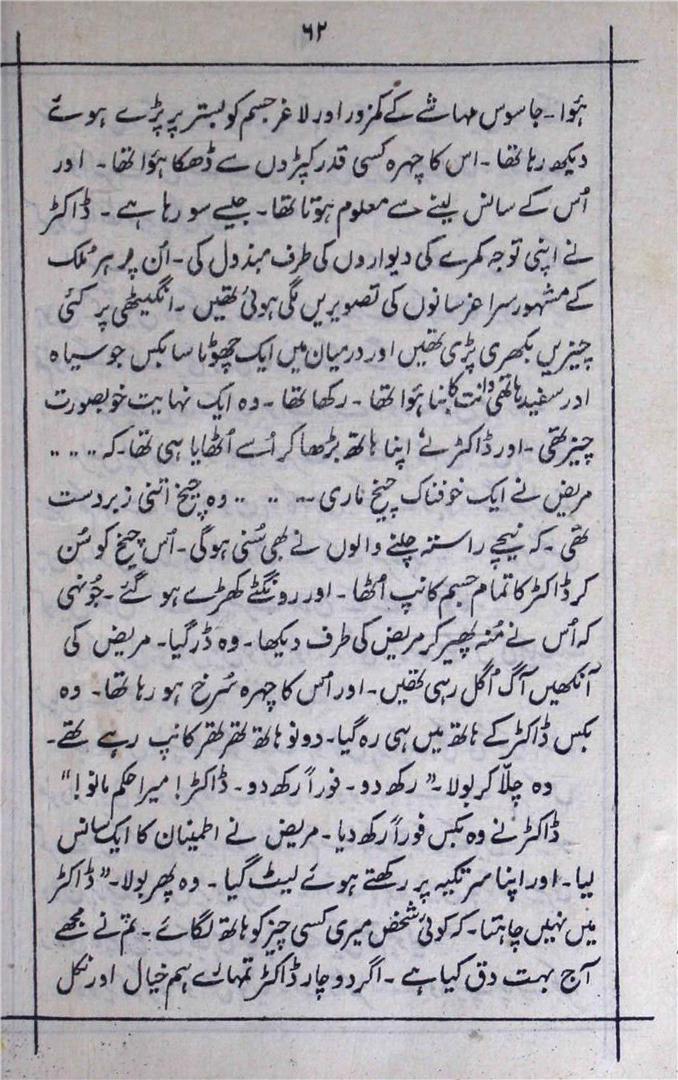 ۶۲
ہؤا۔جاسوس مہاشے کے کمزور اور لاغر جسم کو بستر پر پڑے ہوئے
دیکھ رہا تھا۔اس کا چہرہ کسی قدر کپڑوں سے ڈھکا ہؤا تھا۔ اور
اُس کے سانس لینے سے معلوم ہوتا تھا۔جیسے سو رہا ہے۔ ڈاکٹر
نے اپنی توجہ کمرے کی دیواروں کی طرف مبذول کی۔ان پر ہر مُلک
کے مشہور سراغرسانوں کی تصویریں لگی ہوئی تھیں ۔انگیٹھی پر کئی
چیزیں بکھری پڑی تھیں اور درمیان میں ایک چھوٹا سا بکس جو سیاہ
اور سفید ہاتھی دانت کا بنا ہؤا تھا ۔رکھا تھا ۔وہ ایک نہایت خوبصورت
چیز تھی ۔اور ڈاکٹر نے اپنا ہاتھ بڑھا کر اُسے اُٹھایا ہی تھا۔کہ ۔۔ ۔۔
مریض نے ایک خوفناک چیخ ماری ۔۔ ۔۔ ۔۔ وہ چیخ اتنی زبردست
تھی ۔کہ نیچے راستہ چلنے والوں نے بھی سُنی ہوگی۔اُس چیخ کو سُن
کر ڈاکٹر کا تمام جسم کانپ اُٹھا ۔اور رونگٹے کھڑے ہو گئے ۔جُونہی
کہ اُس نے مُنہ پھیر کر مریض کی طرف دیکھا۔وہ ڈر گیا۔ مریض کی
آنکھیں آگ اُگل رہی تھیں ۔اور اُس کا چہرہ سُرخ ہو رہا تھا۔ وہ
بکس ڈاکٹر کے ہاتھ میں ہی رہ گیا۔دونو ہاتھ تھر تھر کانپ رہے تھے۔
وہ چلّا کر بولا۔”رکھ دو ۔فوراً رکھ دو ۔ڈاکٹر! میرا حکم مانو!“
ڈاکٹر نے وہ بکس فوراً رکھ دیا ۔مریض نے اطمینان کا ایک سانس
لیا۔اور اپنا سر تکیہ پر رکھتے ہوئے لیٹ گیا ۔ وہ پھر بولا۔”ڈاکٹر
میں نہیں چاہتا۔کہ کوئی شخص میری کسی چیز کو ہاتھ لگائے ۔تم نے مجھے
آج بہت دق کیا ہے ۔اگر دو چار ڈاکٹر تمہارے ہم خیال اور نکل